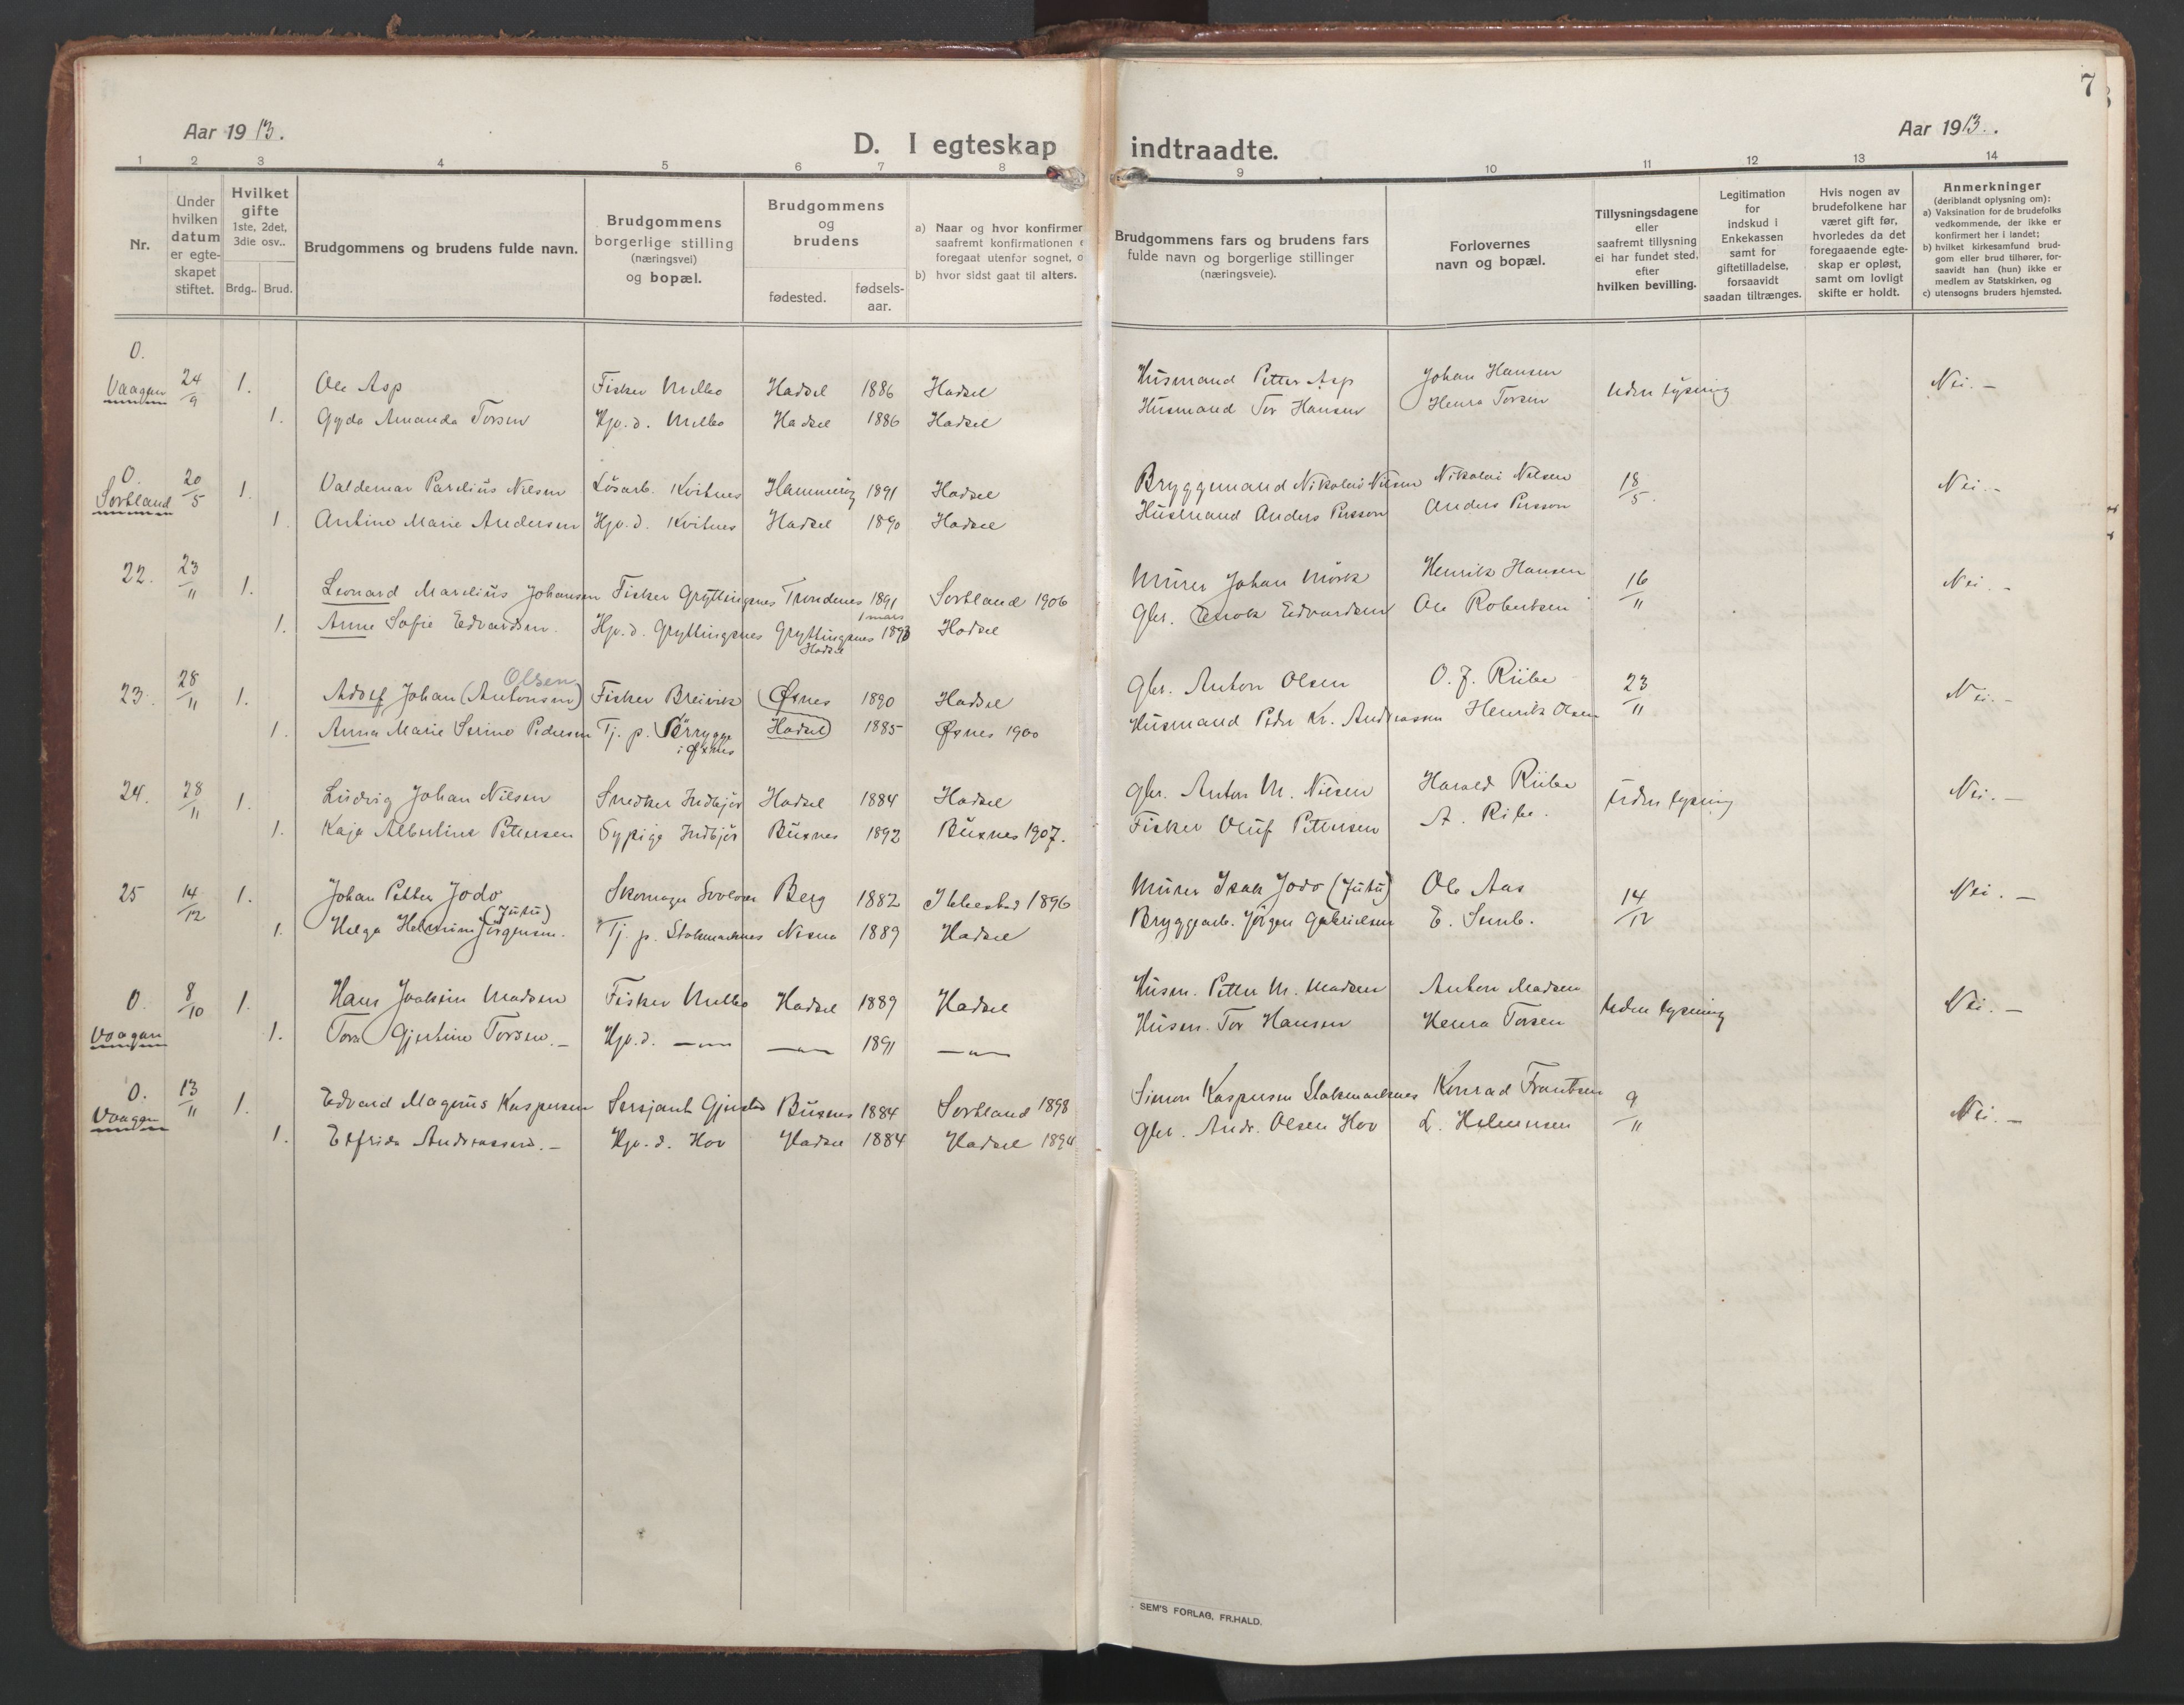 7
Aar 1913.
D. I egteskap indtraadte.
Aar 1913.
1 2 3 4 5 6 7 8 9 10 11 12 13 14
Nr.
Under hvilken datum er egte-skapet stiftet.
Hvilket gifte 1ste, 2det, 3die osv..
Brdg.. Brud.
Brudgommens og brudens fulde navn.
Brudgommens borgerlige stilling (næringsvei) og bopæl.
Brudgommens og brudens
fødested. fødsels-aar.
a) Naar og hvor konfirmer
saafremt konfirmationen
foregaat utenfor sognet, o
b) hvor sidst gaat til alters.
Brudgommens fars og brudens fars
fulde navn og borgerlige stillinger
(næringsveie).
Forlovernes
navn og bopæl.
Tillysningsdagene
eller
saafremt tillysning
ei har fundet sted,
efter
hvilken bevilling.
Legitimation
for
indskud i
Enkekassen
samt for
giftetilladelse,
forsaavidt
saadan tiltrænges.
Hvis nogen av
brudefolkene har
været gift før,
hvorledes da det
foregaaende egte-
skap er opløst,
samt om lovligt
skifte er holdt.
Anmerkninger
(deriblandt oplysning om):
a) Vaksination for de brudefolks
vedkommende, der ikke er
konfirmert her i landet;
b) hvilket kirkesamfund brud-
gom eller brud tilhører, for-
saavidt han (hun) ikke er
medlem av Statskirken, og
c) utensogns bruders hjemsted.
0.
Vaagan 24/9 1. Ole Asp Fisker Melbo Hadsel 1886 Hadsel Husmand Petter Asp Johan Hansen Uden lysning Nei. -
1. Gyda Amanda Torsen Hjv. d. Melbo Hadsel 1886 Hadsel Husmand Tor Hansen Henra Torsen
0.
Sortland 20/5 1. Valdemar Parelius Nilsen Lösarb. Kvitnes Hammerøy 1891 Hadsel Bryggemand Nikolai Nilsen Nikolai Nilsen 18/5. Nei. -
1. Antine Marie Andersen Hjv. d. Kvitnes Hadsel 1890 Hadsel Husmand Anders Persson Anders Persson
22. 23/11 1. Leonard Marelius Johansen Fisker Gryttingsnes Trondenes 1891 Sortland 1906 Murer Johan Mörk Henrik Hansen 16/11 Nei. -
1. Anne Sofie Edvardsen. Hjv. d. Gryttingsnes Gryttingsnes Hadsel 1 mars 1893 Hadsel Gbr. Enok Edvardsen Ole Robertsen
23. 28/11 1. Adolf Johan (Antonsen) Olsen Fisker Breivik Øsnes 1890 Hadsel Gbr. Anton Olsen O. J. Riibe 23/11 Nei. -
1. Anna Marie Serine Pedersen Tj. p. i Øxnes Hadsel 1885 Øsnes 1900 Husmand Peder Kr. Andreassen Henrik Olsen
24. 28/11 1. Ludvig Johan Nilsen Snedker Indbjör Hadsel 1884 Hadsel Gbr. Anton M. Nilsen Harald Riibe Uden lysning Nei. -
1. Kaja Albertine Pettersen Sypige Indbjör Buxnes 1892 Buxnes 1907. Fisker Oluf Pettersen A. Ribe.
25 14/12 1. Johan Petter Jodo Skomager Svolvær Berg 1882 Ibbestad 1896 Murer Isak Jodo (Jutu) Ole Aas 14/12 Nei. -
1. Helga Helmine Jörgensen. (Jutu) Tj. p. Stokmarknes Nesna 1889 Hadsel Bryggearb. Jörgen Gabrielsen E. Sunb.
0. 8/10 1. Hans Joakim Madsen Fisker Melbo Hadsel 1889 Hadsel Husm. Petter M. Madsen Anton Madsen Uden lysning Nei. -
Vaagan 1. Tora Gjertine Torsen. - Hjv. d. -"- -"- 1891 -"- Husm. Tor Hansen Henra Torsen
0.
Vaagan 13/11 1. Edvard Magnus Kaspersen Sersjant Buxnes 1884 Sortland 1898 Simon Kaspersen Stokmarknes Konrad Frantsen 9/11 Nei. -
1. Elfrida Andreassen. - Hjv. d. Hov Hadsel 1884 Hadsel 1894 Gbr. Andr. Olsen Hov L. Helmersen
SEM'S FORLAG, FR.HALD.